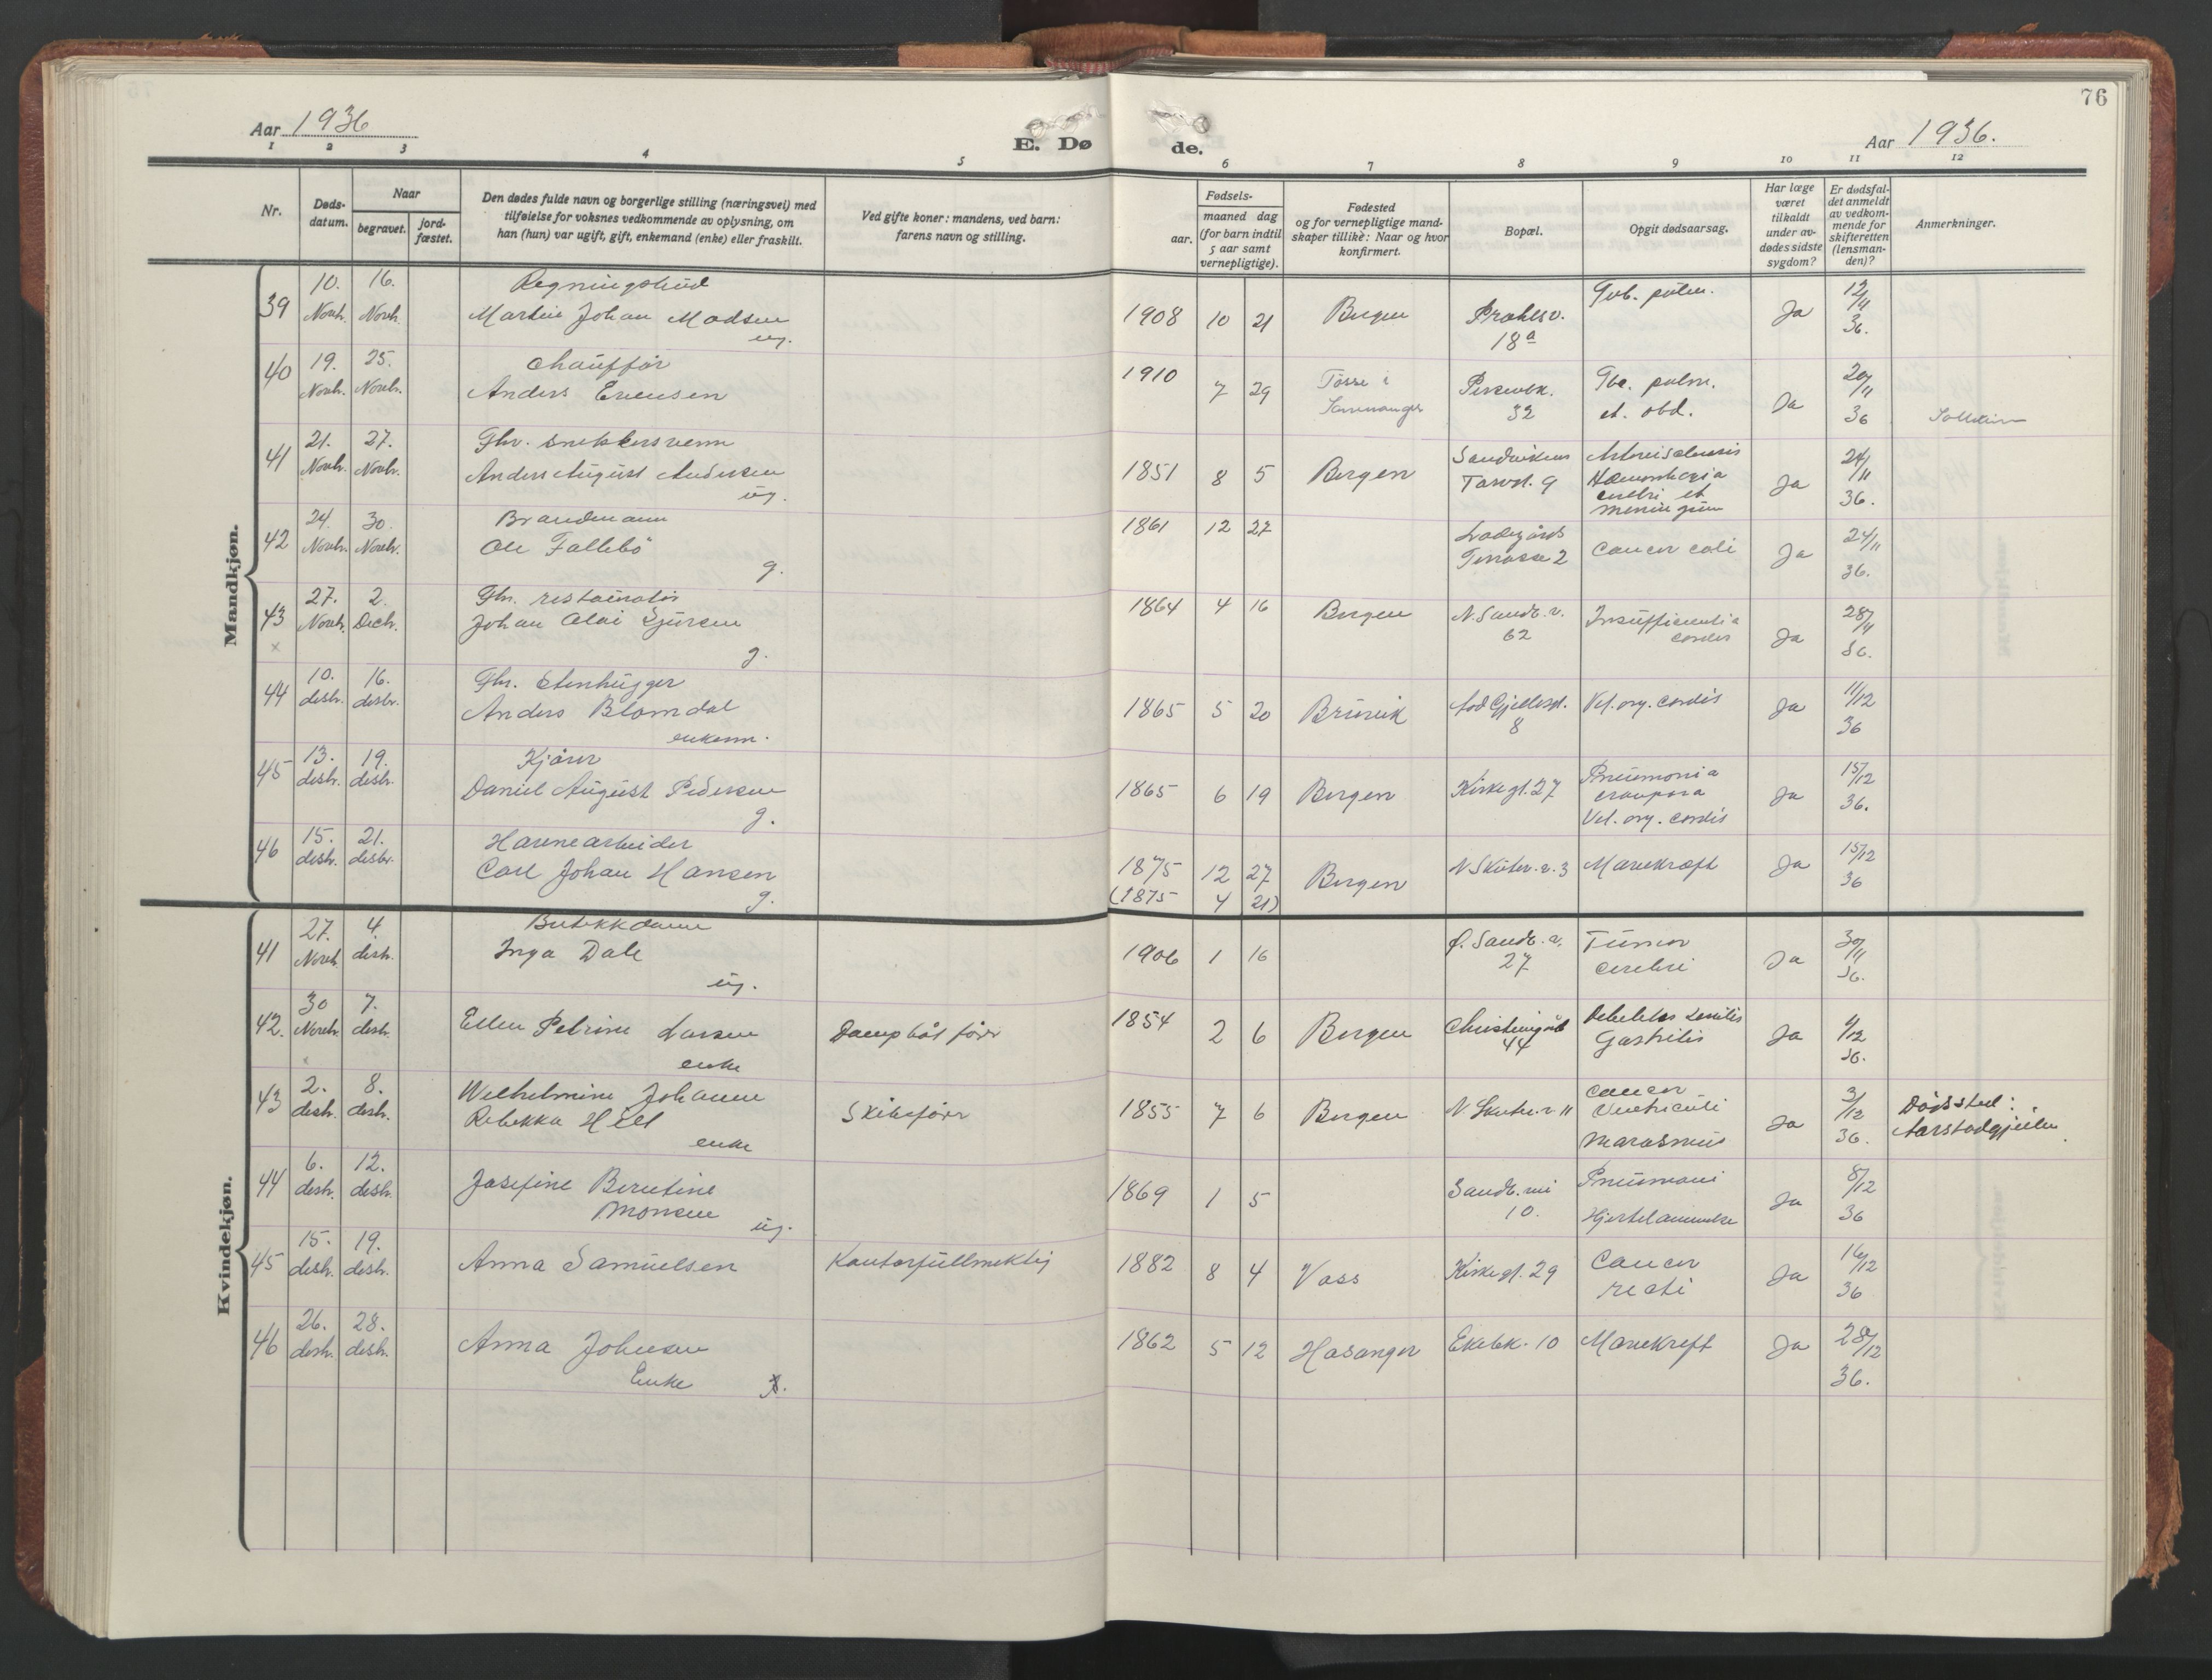 76
Aar 1936
E. Dø de.
Aar 1936.
1 2 3 4 5 6 7 8 9 10 11 12
Nr.
Døds-
datum.
Naar
begravet.
jord-
fæstet.
Den dødes fulde navn og borgerlige stilling (næringsvei) med
tilføielse for voksnes vedkommende av oplysning, om
han (hun) var ugift, gift, enkemand (enke) eller fraskilt.
Ved gifte koner: mandens, ved barn:
farens navn og stilling.
Fødsels-
aar.
maaned dag
(for barn indtil
5 aar samt
vernepligtige).
Fødested
og for vernepligtige mand-
skaper tillike: Naar og hvor
konfirmert.
Bopæl.
Opgit dødsaarsag.
Har læge
været
tilkaldt
under av-
dødes sidste
sygdom?
Er dødsfal-
det anmeldt
av vedkom-
mende for
skifteretten
(lensman-
den)?
Anmerkninger.
Mandkjøn.
39 10. Novb. 16. Novb. Regningsbud
Martin Johan Madsen
ug.
1908 10 21 Bergen Prahlsv.
18a
Tub. pulm. Ja 12/11
36.
40 19. Novb. 25. Novb. Chauffør
Anders Evensen
1910 7 29 Tøsse i
Samnanger
32
Tbc. pulm.
et. abd. Ja 20/11
36
41 21. Novb. 27. Novb. Fhv. snekkersvenn
Anders August Andersen
ug.
1851 8 5 Bergen Sandvikens
Torvgt. 9
Arteriosclerosis
Hæmorrhagia
cerebri et
meningum
Ja 24/11
36.
42 24. Novb. 30. Novb. Brandmann
Ole Fallebö
g.
1861 12 27 Ladegårds
Terrasse 2 Cancer coli Ja 24/11
36.
43 27. Novb. 2. Decb. Fhv. restauratör
Johan Olai Sjursen
g.
×
1864 4 16 Bergen N. Sandv. v.
62 Insufficientia
cordis Ja 28/11
36.
44 10. desbr. 16. desbr. Fhv. Stenhugger
Anders Blomdal
enkem.
1865 5 20 Bruvik
8 Vit. org. cordis Ja 11/12
36
45 13. desb. 19. desb. Kjører
Daniel August Pedersen
g.
1865 6 19 Bergen Kirkegt. 27 Pneumonia
crouposa
Vit. org. cordis Ja 15/12
36.
46 15. desb. 21. desbr. Havnearbeider
Carl Johan Hansen
g.
1875 12 27
(1875 4 21)
Bergen N Skutev. v. 3 Marekræft Ja 15/12
36
Kvindekjøn.
41 27. Novb. 4. desb. Butikkdame
Inga Dale
ug.
1906 1 16 Ø. Sandv. v.
27 Tumor
cerebri Ja 30/11
36.
42. 30 Novb. 7. desb. Ellen Petrine Larsen
enke
Dampbåt fører
1854 2 6 Bergen
44 Debilitas senilis
Gastritis Ja 4/12
36.
43 2. desb. 8. desb. Wilhelmine Johanne
Rebekka Hill
enke
Skibsfører
1855 7 6 Bergen N Skutev. v 11 Cancer
Ventriculi
Marasmus Ja 3/12
36. Dødssted:
Aarstadgjeilen
44 6. desb. 12. desb. Josefine Berntine
Monsen
ug.
1869 1 5 Sandv. vei
10. Pneumoni
Hjertelammelse Ja 8/12
36
45 15. desb. 19. desb. Anna Samuelsen Kontorfullmektig
1882 8 4 Voss Kirkegt. 29 Cancer
recti Ja 16/12
36
46 26. desb. 28. desb. Anna Johnsen
Enke
1862 5 12 Hosanger Ekebk. 10 Mavekreft Ja 28/12
36.